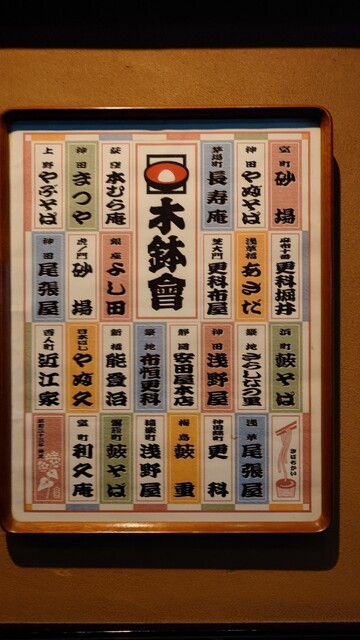 木鉢會
室町 砂場
神田 やぶそば
茅場町 長寿庵
荻窪 本むら庵
神田 まつや
上野 やぶそば
麻布十番 更科堀井
浅草橋 あさだ
芝大門 更科布屋
銀座 よし田
虎ノ門 砂場
神田 尾張屋
浜町 藪そば
築地 さらしなの里
神田 浅野屋
静岡 安田屋本店
築地 布恒更科
新橋 能登治
日本ばし やぶ久
百人町 近江家
きばちかい
浅草 尾張屋
神田錦町 更科
梅島 藪重
猿楽町 浅野屋
雷門 藪そば
室町 利久庵